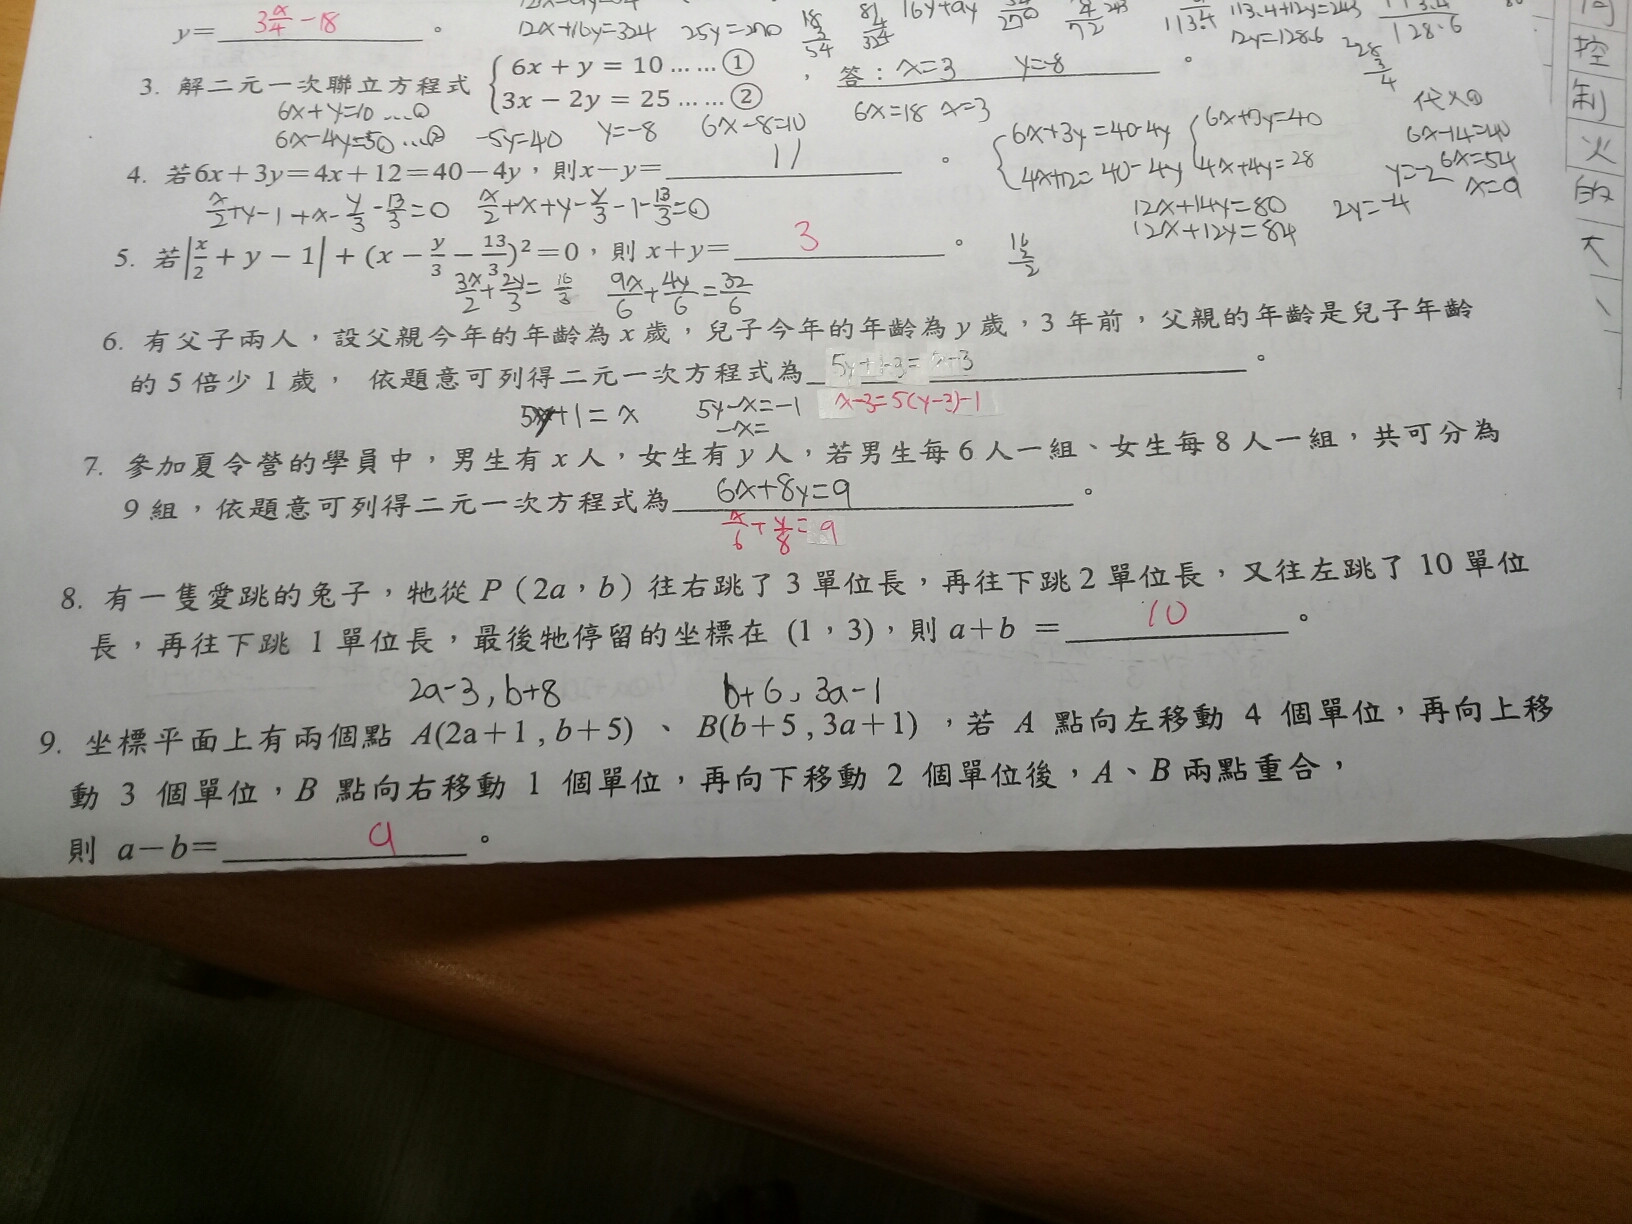 y= 3x/4 −18 。
12x+16y=324 25y=270
3. 解二元一次聯立方程式 { 6x + y = 10 …… ① , 答：x=3 y=-8 。
3x − 2y = 25 …… ②
6x+y=10 …①
6x-4y=50 …② -5y=40 y=-8 6x-8=10 6x=18 x=3
4. 若6x+3y=4x+12=40−4y，則x−y= 11 。
{ 6x+3y=40-4y { 6x+7y=40
4x+12=40-4y 4x+4y=28
代入①
6x-14=40
y=-2 6x=54
x=9
12x+14y=80 2y=-4
12x+12y=84
x/2+y-1+x-y/3-13/3=0 x/2+x+y-y/3-1-13/3=0
5. 若|x/2 + y − 1| + (x − y/3 − 13/3)²=0，則 x+y= 3 。
3x/2+2y/3=16/3 9x/6+4y/6=32/6
6. 有父子兩人，設父親今年的年齡為 x 歲，兒子今年的年齡為 y 歲，3 年前，父親的年齡是兒子年齡
的 5 倍少 1 歲， 依題意可列得二元一次方程式為 。
5y+1=x 5y-x=-1 x-3=5(y-3)-1
-x=
7. 參加夏令營的學員中，男生有 x 人，女生有 y 人，若男生每 6 人一組、女生每 8 人一組，共可分為
9 組，依題意可列得二元一次方程式為 6x+8y=9 。
x/6+y/8=9
8. 有一隻愛跳的兔子，牠從 P（2a，b）往右跳了 3 單位長，再往下跳 2 單位長，又往左跳了 10 單位
長，再往下跳 1 單位長，最後牠停留的坐標在 (1，3)，則 a＋b ＝ 10 。
2a-3, b+8 b+6, 3a-1
9. 坐標平面上有兩個點 A(2a＋1 , b＋5) 、 B(b＋5 , 3a＋1) ，若 A 點向左移動 4 個單位，再向上移
動 3 個單位，B 點向右移動 1 個單位，再向下移動 2 個單位後，A、B 兩點重合，
則 a－b＝ 9 。
控
制
火
的
大